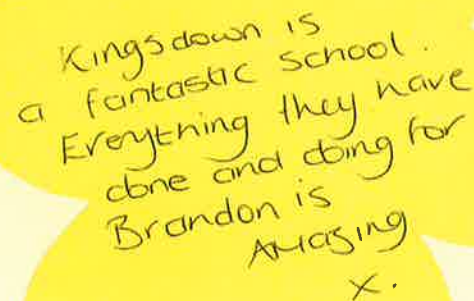 Kingsdown is
a fantastic school.
Ereything they have
done and doing for
Brandon is
Amazing
x.